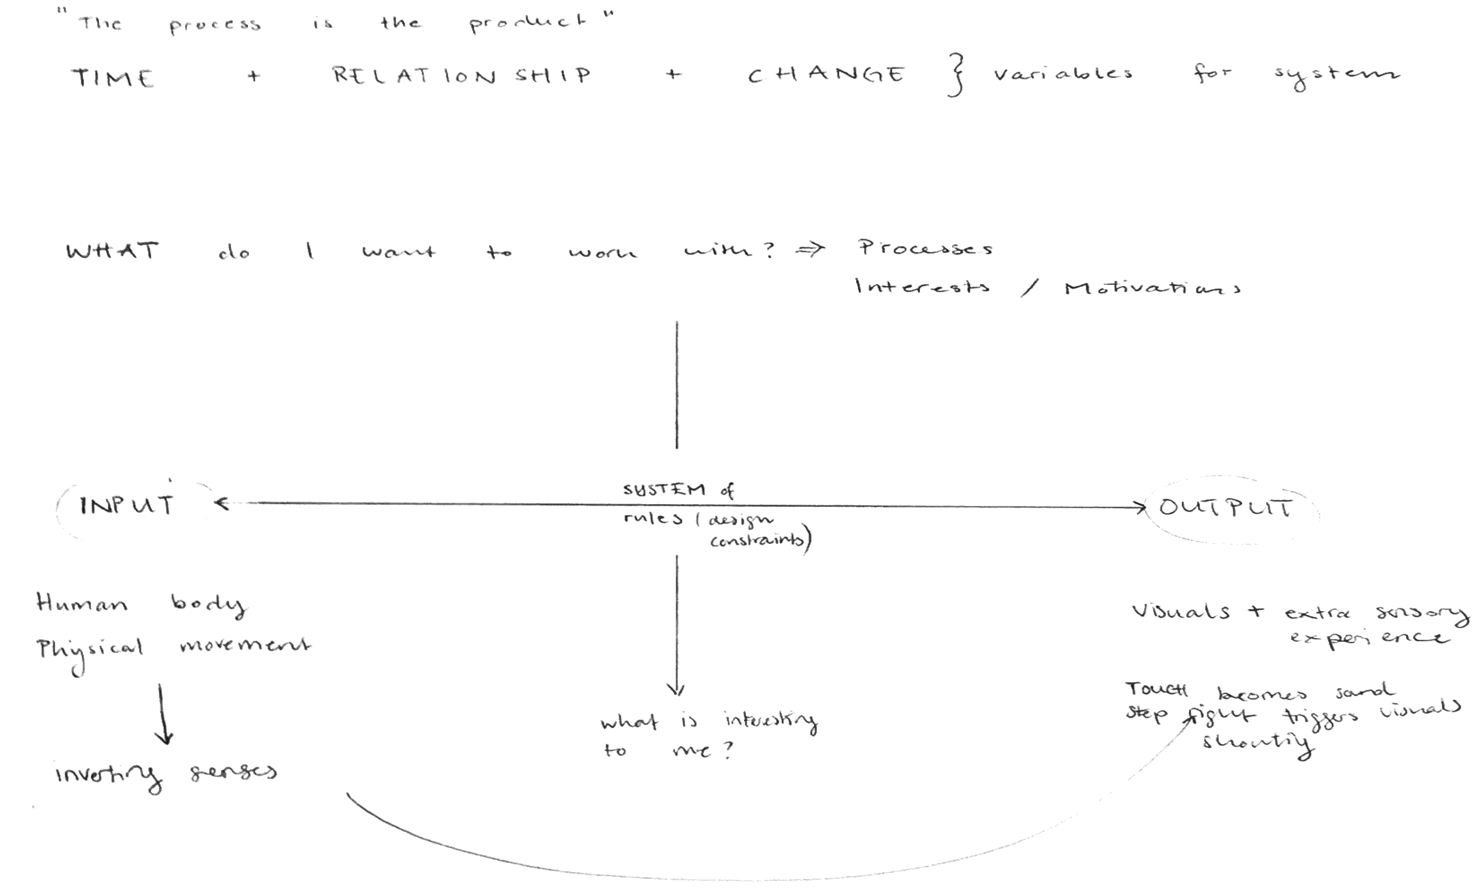 "The process is the product"
TIME + RELATIONSHIP + CHANGE } variables for system
WHAT do I want to work with? ⇒ Processes
Interests / Motivations
INPUT
SYSTEM of
rules (design
constraints)
OUTPUT
Human body
Physical movement
Inverting senses
what is interesting
to me?
Visuals + extra sensory
experience
Touch becomes
step right triggers visuals